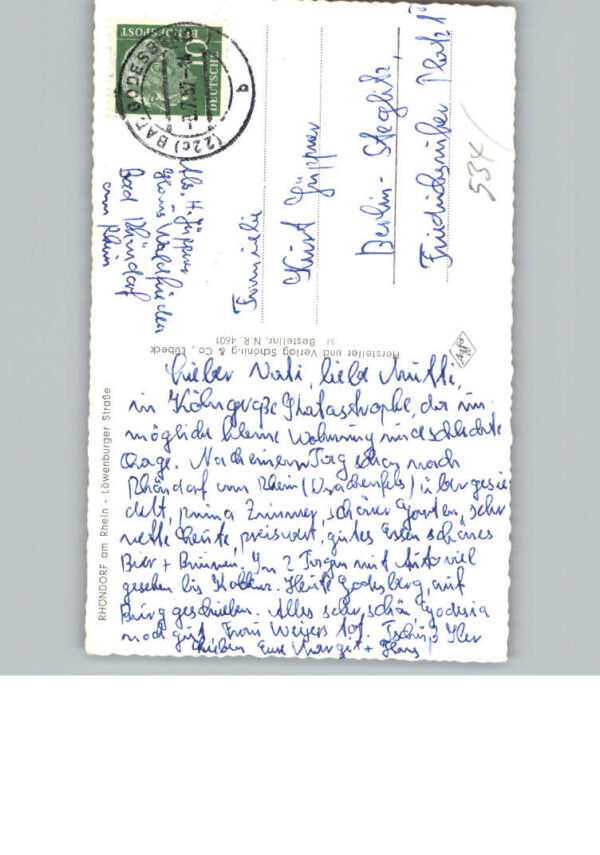 Lieber Vati, liebe Mutti,
in Köln große Katastrophe, da un-
mögliche kleine Wohnung und schlechte
Lage. Nach einem Tag schon nach
Rhöndorf am Rhein (Drachenfels) übergesie-
delt, prima Zimmer, schöner Garten, sehr
nette Leute, preiswert, gutes Essen, schönes
Bier + Brunnen. In 2 Tagen mit Auto viel
gesehen bis Koblenz. Heute Godesberg, auf
Burg geschrieben. Alles sehr schön,
noch gut. Frau Weyers Tschüß
Lieben Eure Margit + Hans
Abs. H. Güppner
Haus Waldfrieden
Bad Rhöndorf
am Rhein
Familie
Kurt Güppner
Berlin-Steglitz,
Friedrichsruher Platz 1
534/
DEUTSCHE
BUNDESPOST
10
(22c) BAD GODESBERG
b
RHÖNDORF am Rhein - Löwenburger Straße
Hersteller und Verlag Schöning & Co., Lübeck
Bestellnr. N.R. 4601
Agfa